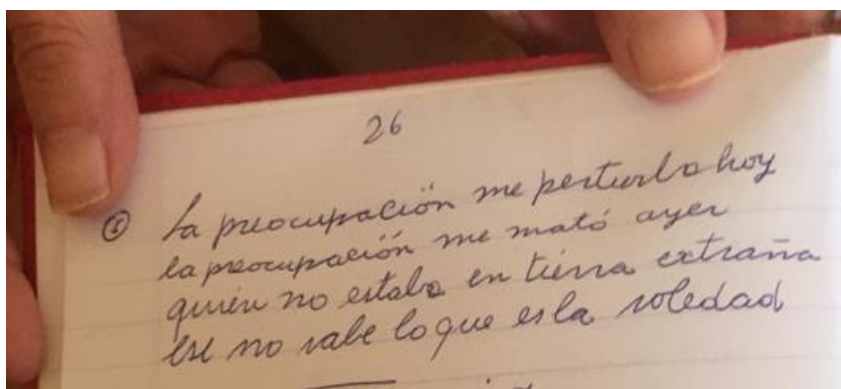 26
⑥ La preocupación me perturba hoy
la preocupación me mató ayer
quién no estaba en tierra extraña
ese no sabe lo que es la soledad